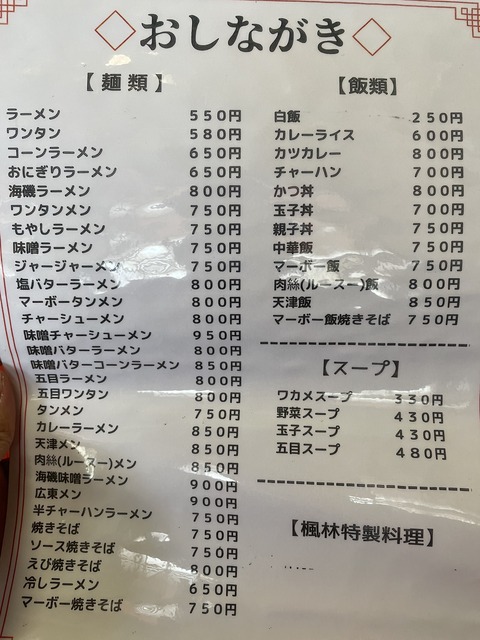 おしながき
【麺類】
ラーメン 550円
ワンタン 580円
コーンラーメン 650円
おにぎりラーメン 650円
海磯ラーメン 800円
ワンタンメン 750円
もやしラーメン 750円
味噌ラーメン 750円
ジャージャーメン 750円
塩バターラーメン 800円
マーボータンメン 800円
チャーシューメン 800円
味噌チャーシューメン 950円
味噌バターラーメン 800円
味噌バターコーンラーメン 850円
五目ラーメン 800円
五目ワンタン 800円
タンメン 750円
カレーラーメン 850円
天津メン 850円
肉絲(ルースー)メン 850円
海磯味噌ラーメン 900円
広東メン 900円
半チャーハンラーメン 750円
焼きそば 750円
ソース焼きそば 750円
えび焼きそば 800円
冷しラーメン 650円
マーボー焼きそば 750円
【飯類】
白飯 250円
カレーライス 600円
カツカレー 800円
チャーハン 700円
かつ丼 800円
玉子丼 700円
親子丼 750円
中華飯 750円
マーボー飯 750円
肉絲(ルースー)飯 800円
天津飯 850円
マーボー飯焼きそば 750円
【スープ】
ワカメスープ 330円
野菜スープ 430円
玉子スープ 430円
五目スープ 480円
【楓林特製料理】